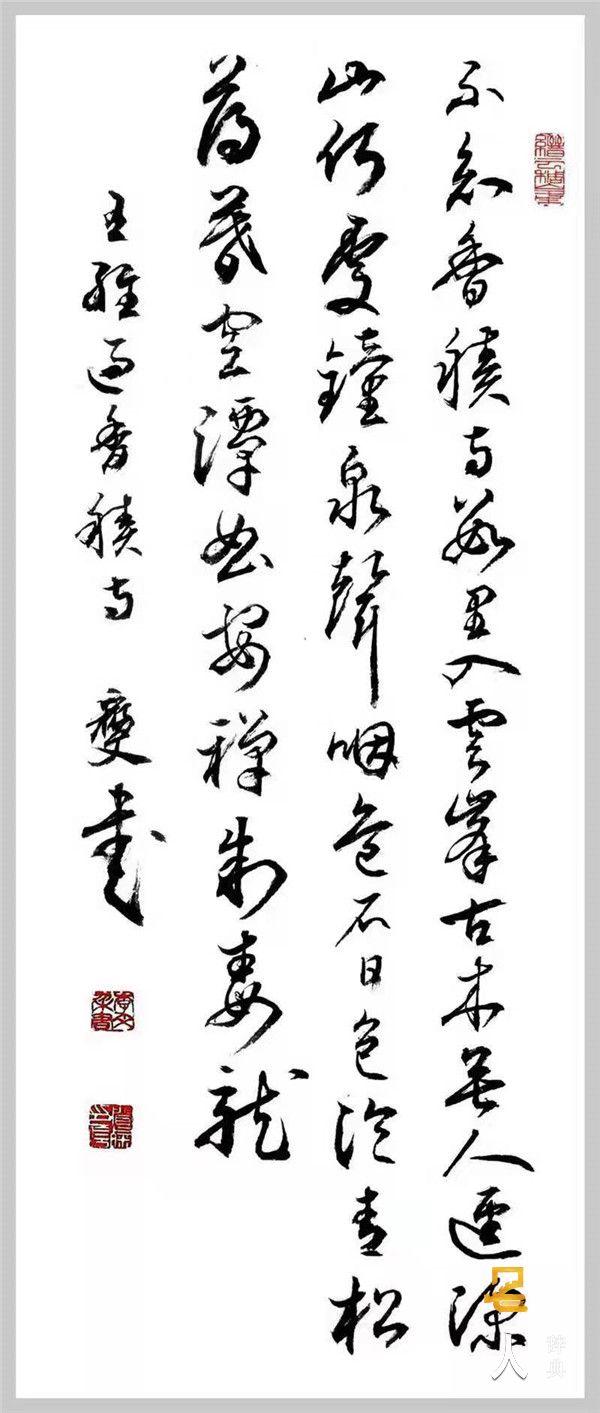 不知香積寺數里入雲峯古木無人逕深
山何處鐘泉聲咽危石日色冷青松
薄暮空潭曲安禪制毒龍
王維過香積寺 書
名人辞典